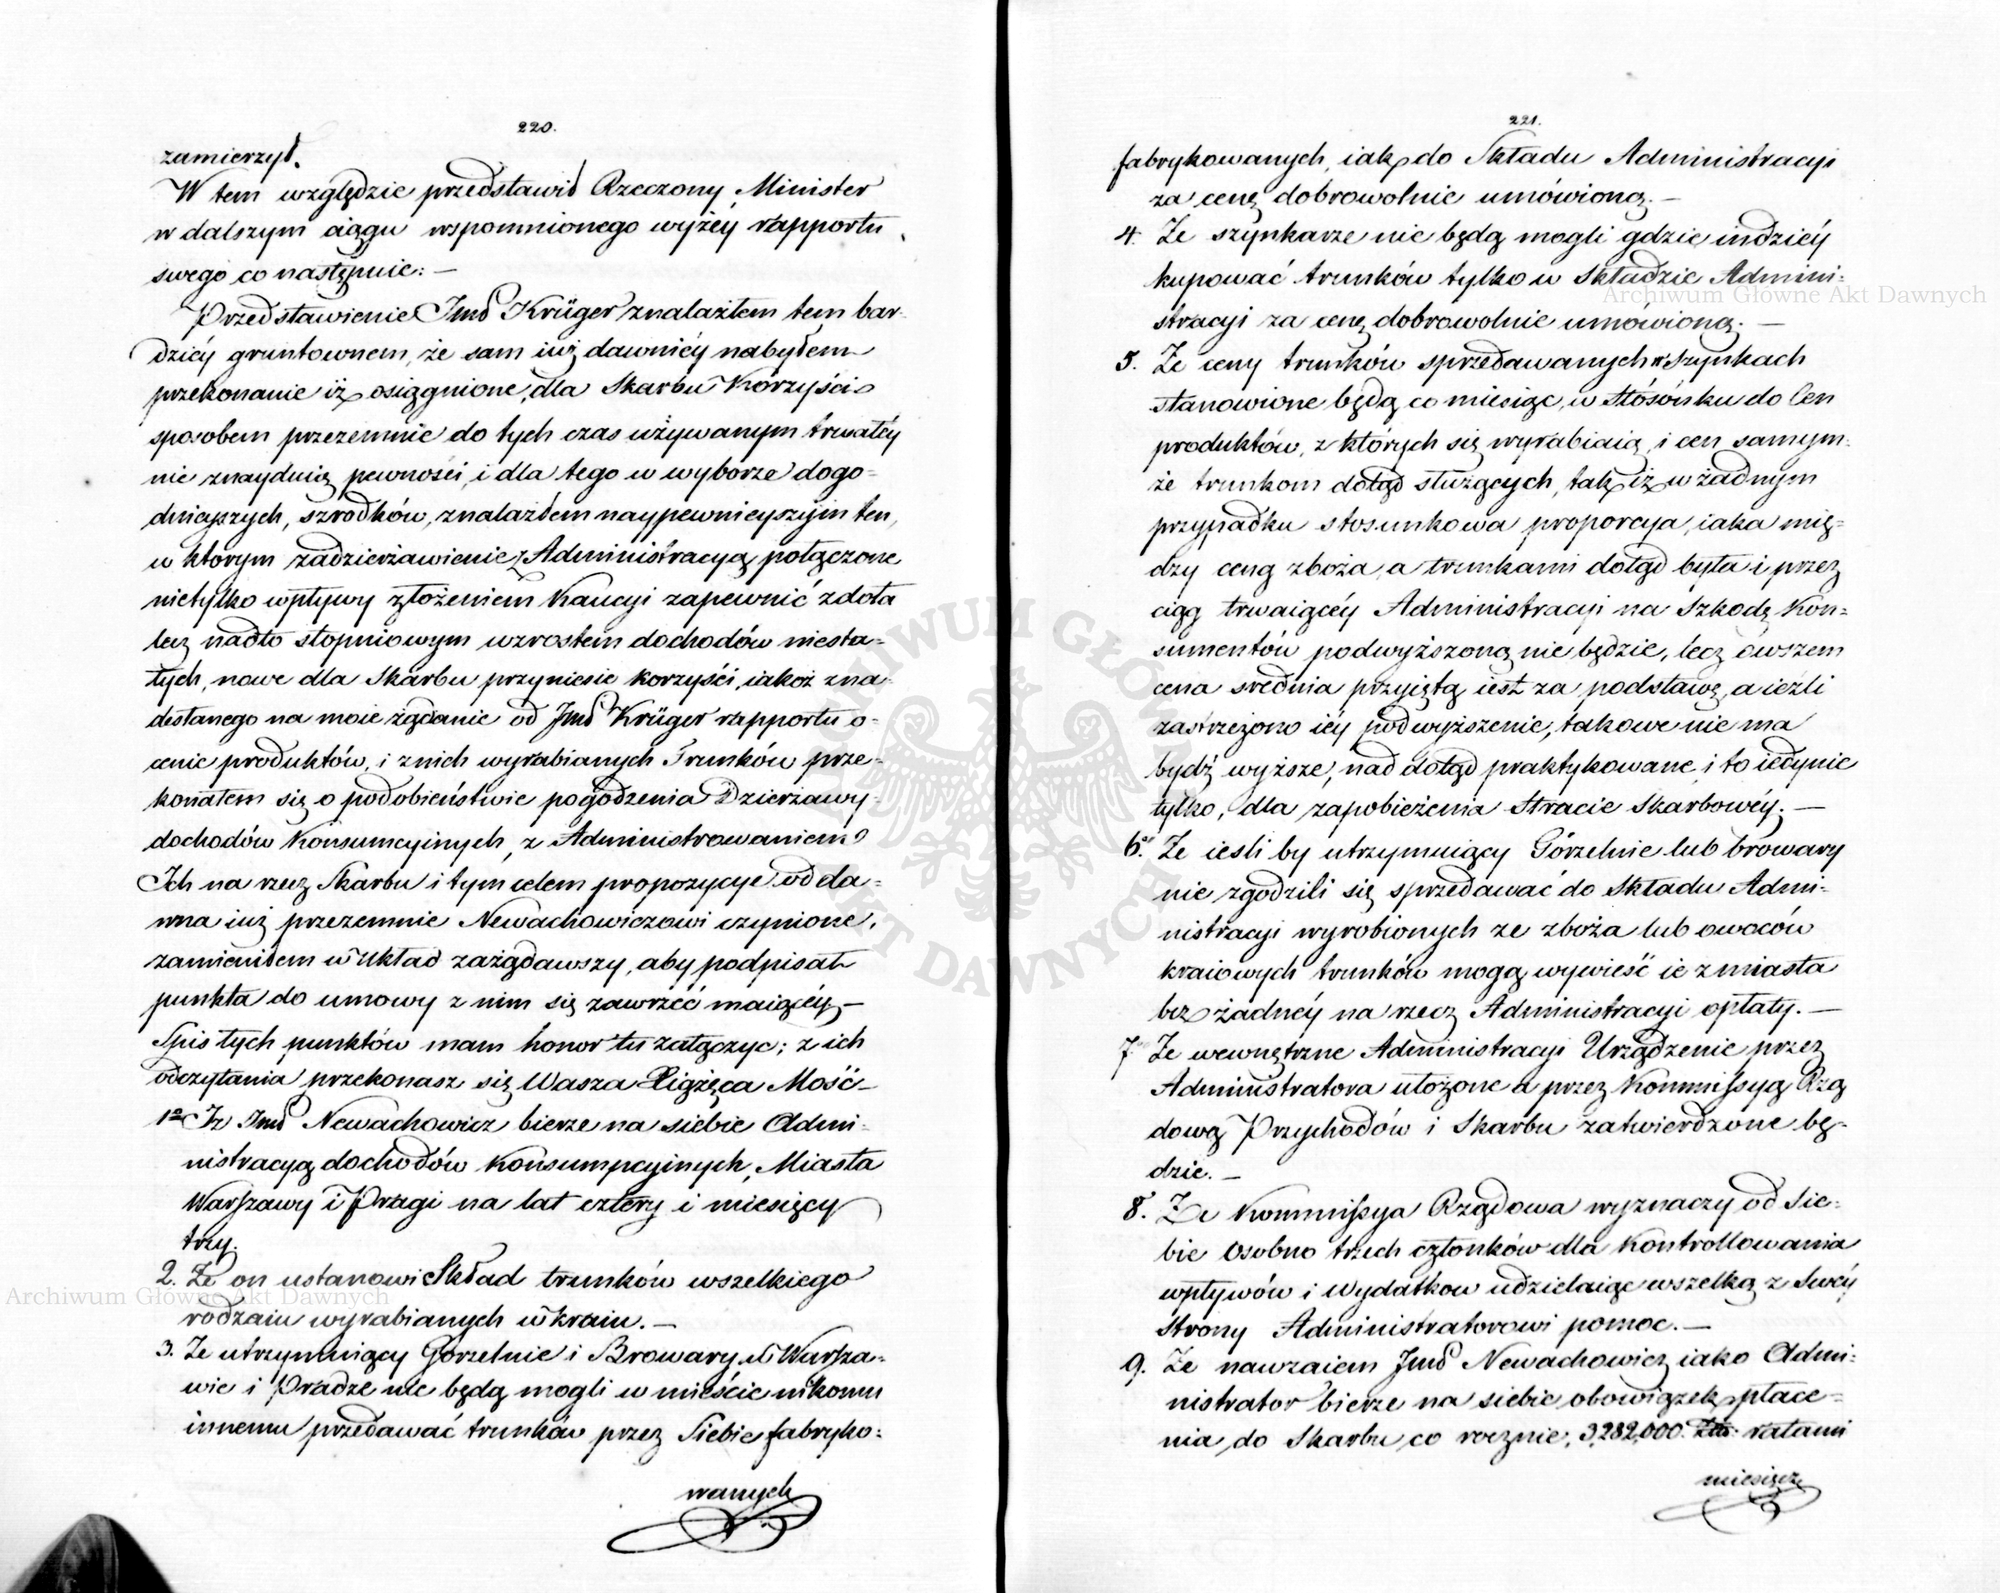 220.
zamierzył.
W tem względzie przedstawił Rzeczony Minister
w dalszym ciągu wspomnionego wyżéy rapportu
swego co następuie: —
Przedstawienie Jmd Krüger znalazłem tem bar-
dziéy gruntownem, że sam iuż dawniéy nabyłem
przekonanie iż osiągnione, dla Skarbu Korzyści
sposobem przezemnie do tych czas używanym trwałéy
nie znayduią pewności, i dla tego w wyborze dogo-
dnieyszych, szrodków, znalazłem naypewnieyszym ten,
w ktorym zadzierżawienie z Administracyą połączone
nietylko wpływy złożeniem Kaucyi zapewnić zdoła
lecz nadto stopniowym wzrostem dochodów niesta-
łych, nowe dla Skarbu przyniesie korzyści, iakoż zna-
destanego na moie żądanie od Jmd Krüger rapportu o-
cenie produktów, i z nich wyrabianych Trunków prze-
konałem się o podobieństwie pogodzenia Dzierżawy
dochodów Konsumcyinych, z Administrowaniem
Ich na rzecz Skarbu i tym celem propozycye od da-
wna iuż przezemnie Newachowiczowi czynione,
zamieniłem w Układ zażądawszy, aby podpisał
punkta do umowy z nim się zawrzéć maiącéy —
Spis tych punktów mam honor tu załączyc; z ich
odczytania przekonasz się Wasza Xiążęca Mość —
1o Iż Jmd Newachowicz bierze na siebie Admi-
nistracyą dochodów Konsumpcyinych, Miasta
Warszawy i Pragi na lat cztery i miesięcy
trzy.
2. Że on ustanowi Skład trunków wszelkiego
rodzaiu wyrabianych w kraiu. —
3. Że utrzymuiący Gorzelnie i Browary w Warsza-
wie i Pradze nie będą mogli w mieście nikomu
innemu przedawać trunków przez Siebie fabryko-
wanych
221.
fabrykowanych, iak do Składu Administracyi
za cenę dobrowolnie umówioną. —
4. Że szynkarze nie będą mogli gdzie indziéy
kupować trunków tylko w Składzie Admini-
stracyi za cenę dobrowolnie umówioną. —
5. Że ceny trunków sprzedawanych w Szynkach
stanowione będą co miesiąc, w Stósónku do Cen
produktów, z których się wyrabiaią, i cen samym-
że trunkom dotąd służących, tak iż w żadnym
przypadku stosunkowa proporcya, iaka mię-
dzy ceną zboża, a trunkami dotąd była i przez
ciąg trwaiącéy Administracyi na Szkodę Kon-
sumentów podwyższoną nie będzie, lecz owszem
cena srednia przyiętą iest za podstawę, a ieżli
zastrzeżono iéy podwyższenie, takowe nie ma
bydź wyższe, nad dotąd praktykowane i to iedynie
tylko, dla zapobieżenia Stracie Skarbowéy. —
6. Że iesli by utrzymuiący Górzelnie lub browary
nie zgodzili się sprzedawać do Składu Admi-
nistracyi wyrobionych ze zboża lub owoców
kraiowych trunków mogą wywieść ie z miasta
bez żadnéy na rzecz Administracyi opłaty. —
7. Że wewnętrzne Administracyi Urządzenie przez
Administratora ułożone a przez Kommissyą Rzą
dową Przychodów i Skarbu zatwierdzone bę-
dzie. —
8. Że Kommissya Rządowa wyznaczy od Sie-
bie Osobno trzech członków dla Kontrollowania
wpływów i Wydatkow udzielaiąc wszelką z Swéy
Strony Administratorowi pomoc. —
9. Że nawzaiem Jmd Newachowicz iako Admi-
nistrator bierze na siebie obowiązek płace-
nia, do Skarbu, co rocznie, 3,282,000. Złt. ratami
miesięcz
Archiwum Główne Akt Dawnych
Archiwum Główne Akt Dawnych
ARCHIWUM GŁÓWNE
AKT DAWNYCH